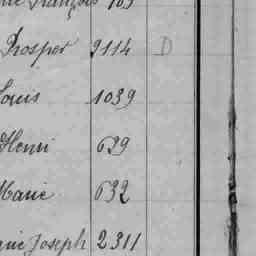 François 765
Prosper 2114 D
Louis 1039
Henri 629
Marie 632
Joseph 2311